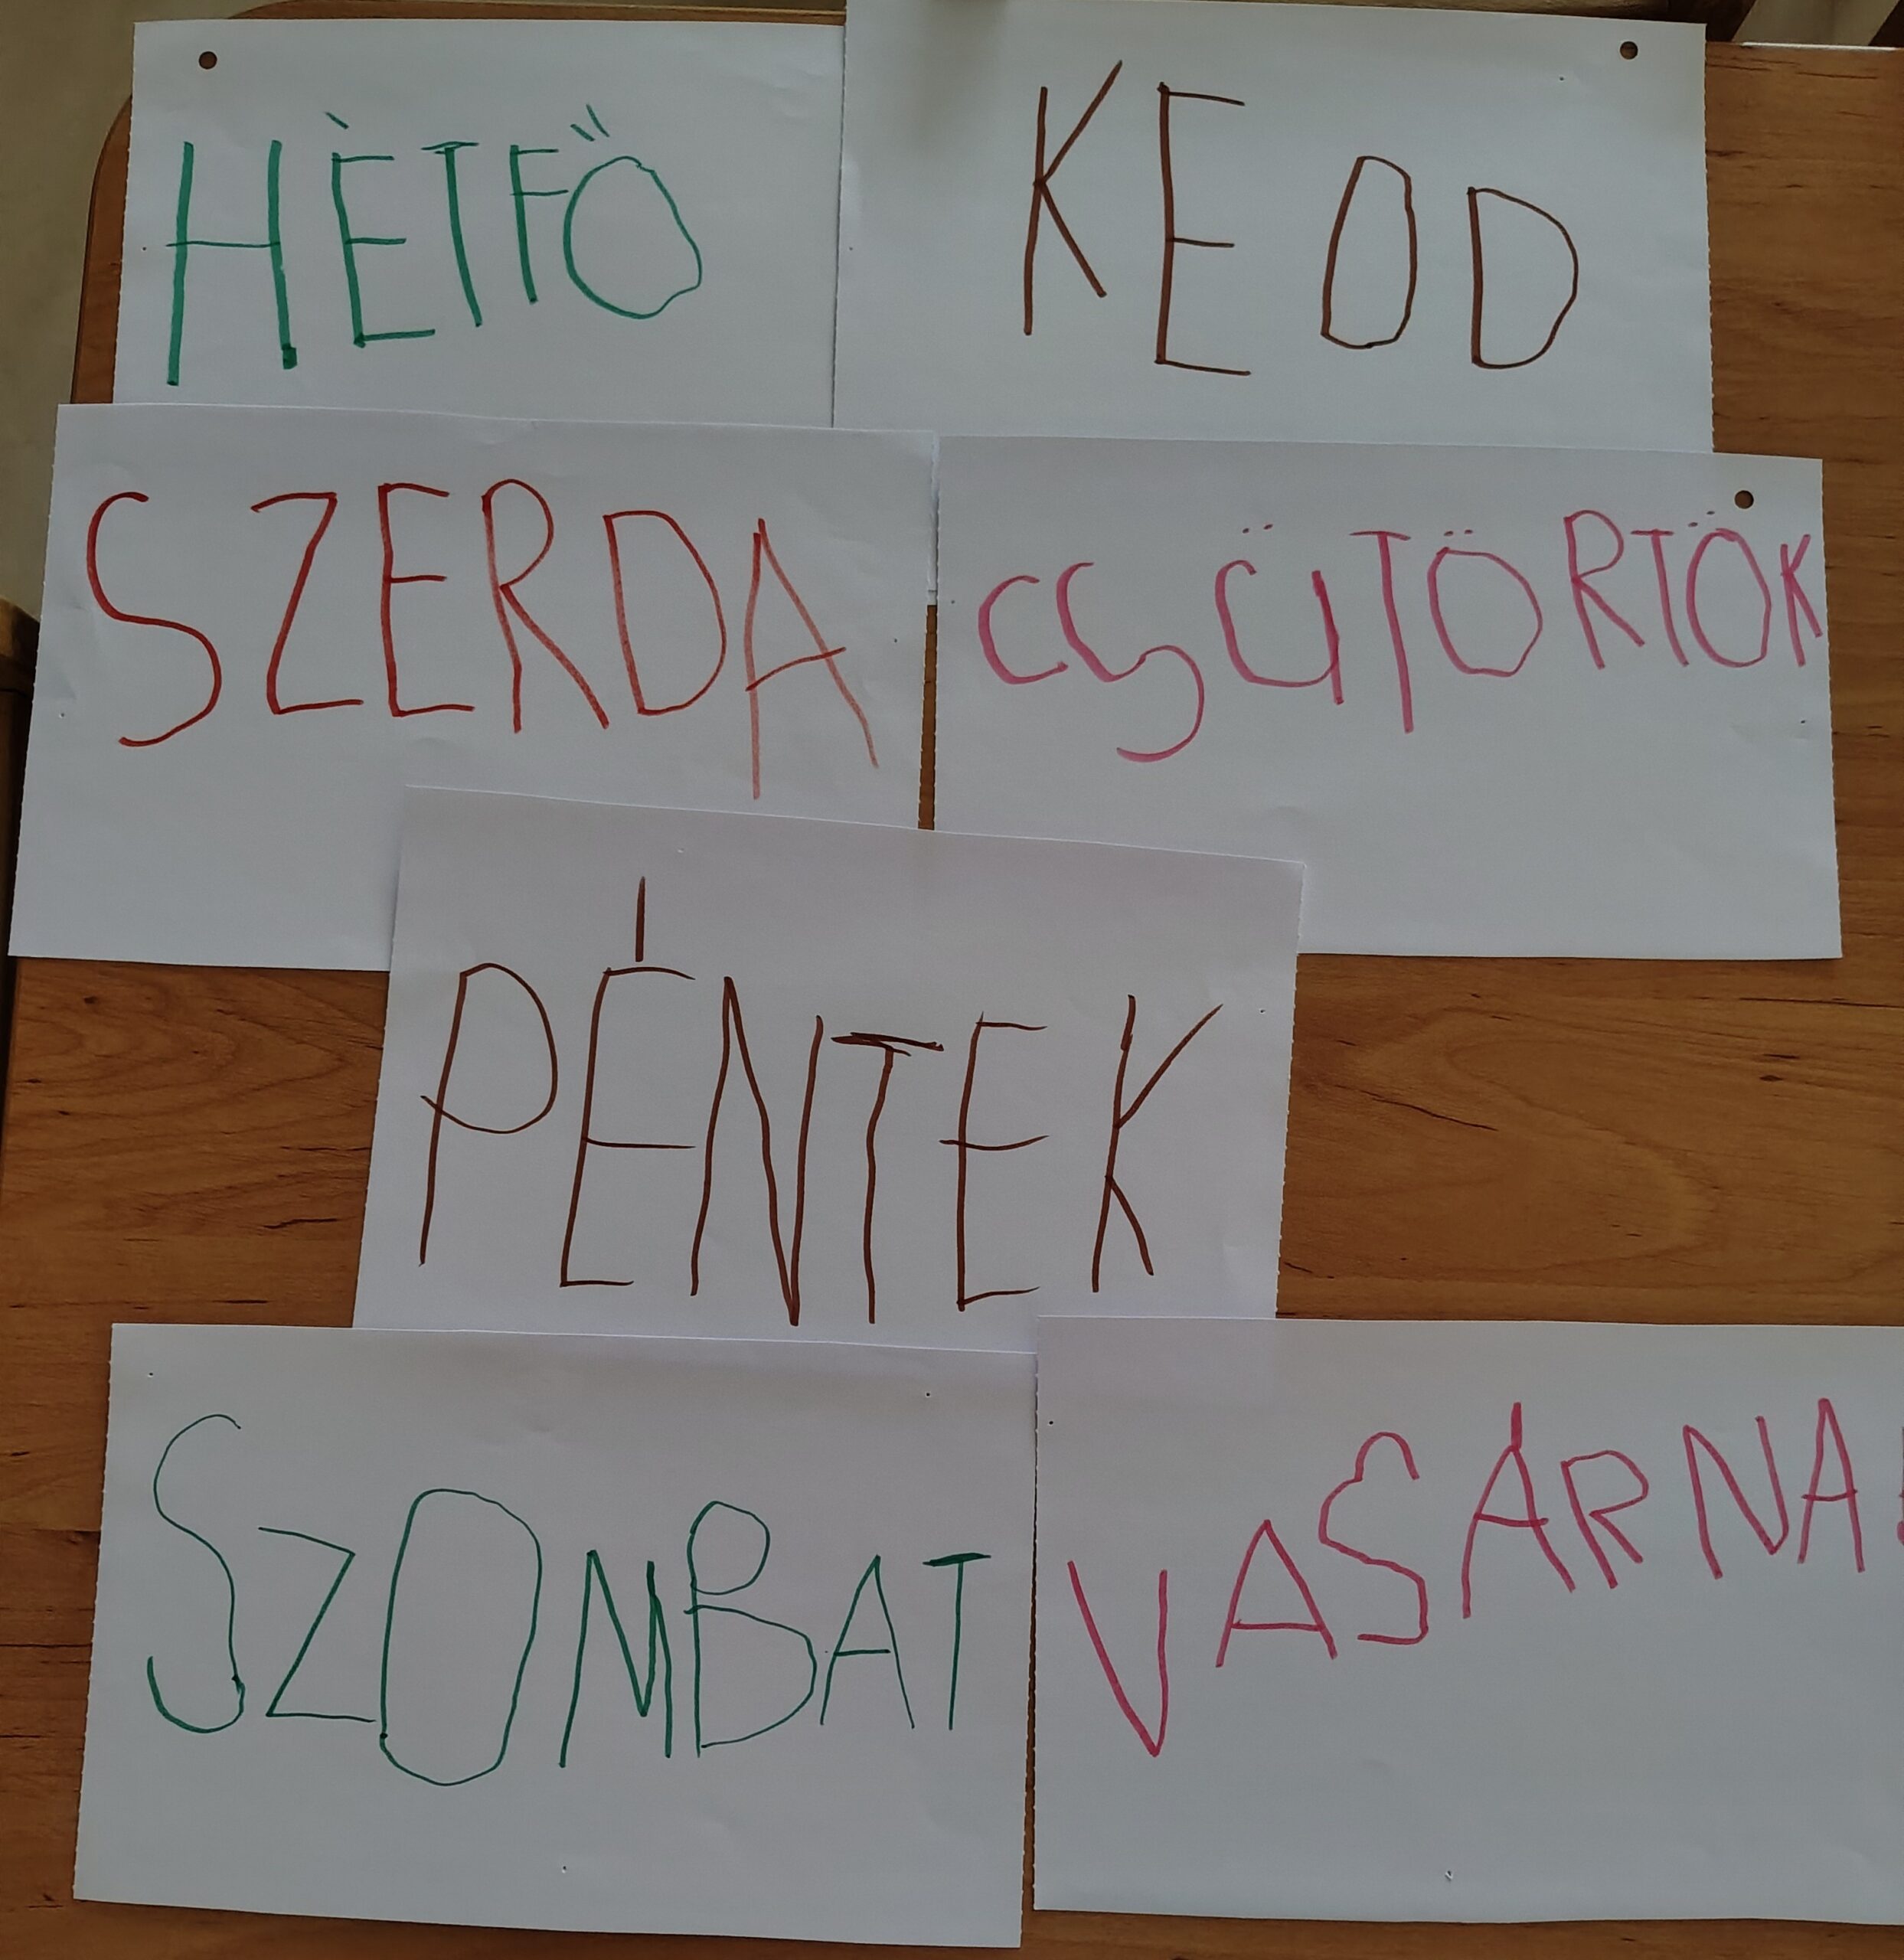 HÈTFŐ
KEOD
SZERDA
CSÜTÖRTÖK
PÉNTEK
SZOMBAT
VASÁRNA